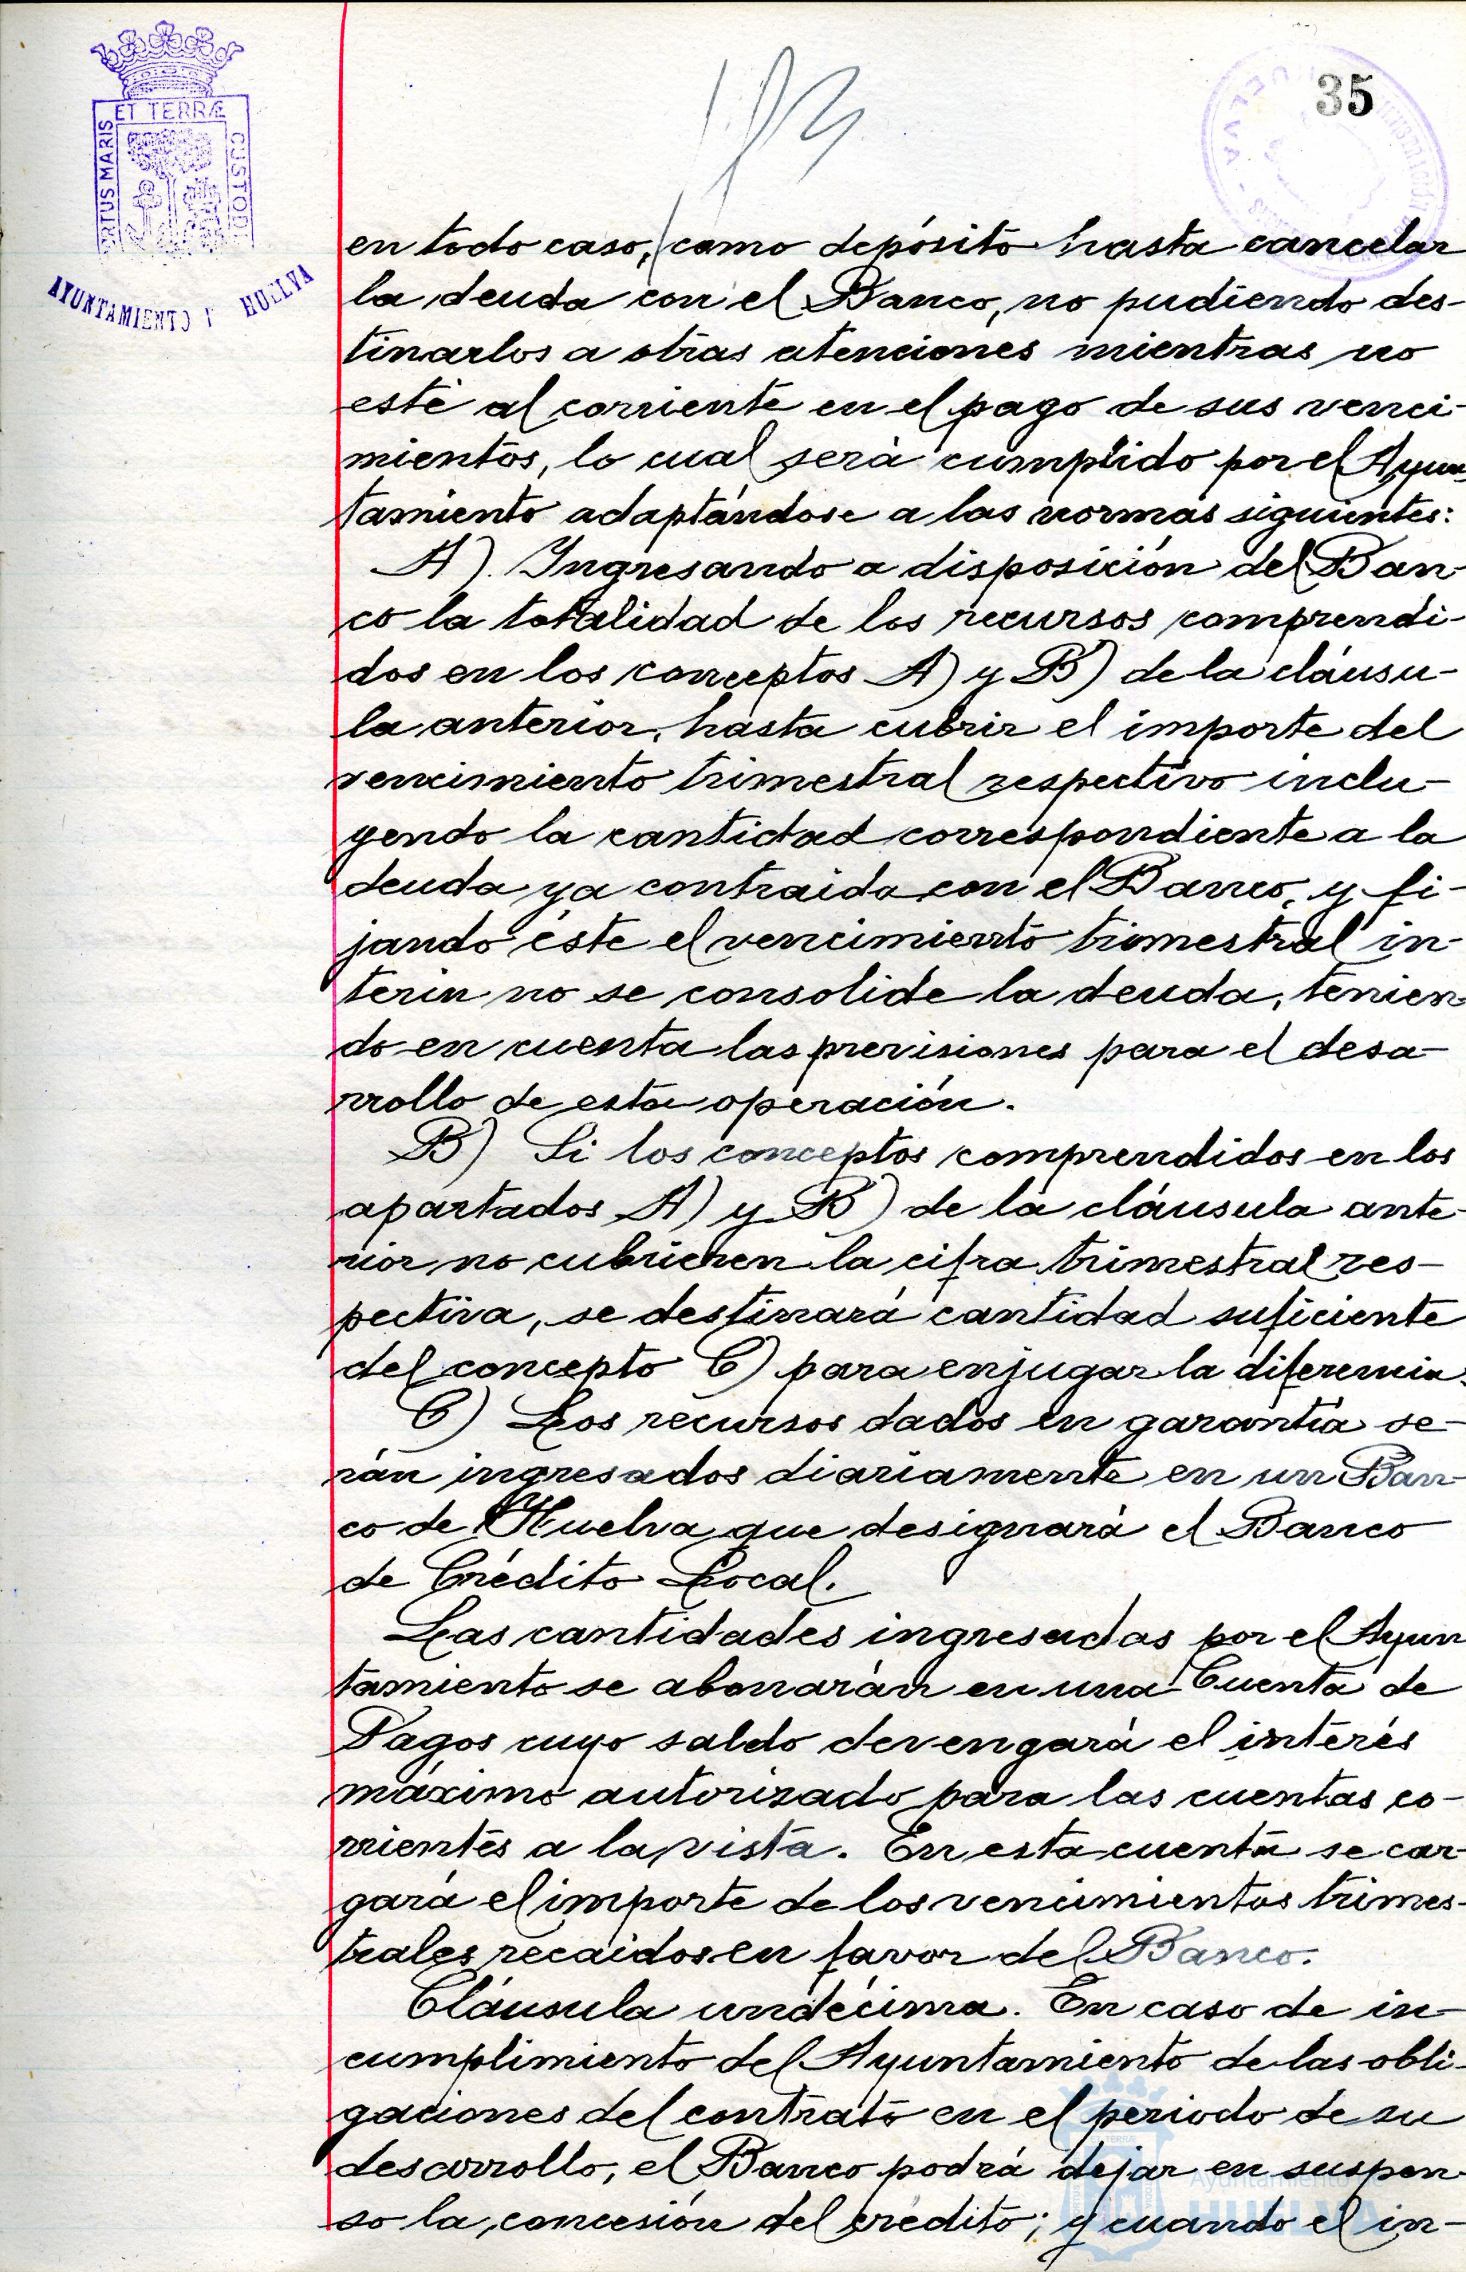 ET TERRÆ
RTUS MARIS
CUSTODI
AYUNTAMIENTO
HUELVA
35
HUELVA
en todo caso, como depósito hasta cancelar
la deuda con el Banco, no pudiendo des-
tinarlos a otras atenciones mientras no
esté al corriente en el pago de sus venci-
mientos, lo cual será cumplido por el Ayun-
tamiento adaptándose a las normas siguientes:
A). Ingresando a disposición del Ban-
co la totalidad de los recursos comprendi-
dos en los conceptos A) y B) de la cláusu-
la anterior, hasta cubrir el importe del
vencimiento trimestral respectivo inclu-
yendo la cantidad correspondiente a la
deuda ya contraida con el Banco, y fi-
jando éste el vencimiento trimestral in-
terin no se consolide la deuda, tenien-
do en cuenta las previsiones para el desa-
rrollo de esta operación.
B) Si los conceptos comprendidos en los
apartados A) y B) de la cláusula ante-
rior no cubrieren la cifra trimestral res-
pectiva, se destinará cantidad suficiente
del concepto C) para enjugar la diferencia.
C) Los recursos dados en garantía se-
rán ingresados diariamente en un Ban-
co de Huelva que designará el Banco
de Crédito Local.
Las cantidades ingresadas por el Ayun
tamiento se abonarán en una Cuenta de
Pagos cuyo saldo devengará el interés
máximo autorizado para las cuentas co-
rrientes a la vista. En esta cuenta se car-
gará el importe de los vencimientos trimes-
trales recaidos en favor del Banco.
Cláusula undécima. En caso de in-
cumplimiento del Ayuntamiento de las obli-
gaciones del contrato en el periodo de su
desarrollo, el Banco podrá dejar en suspen-
so la concesión del crédito; y cuando el in-
Ayuntamiento de
HUELVA